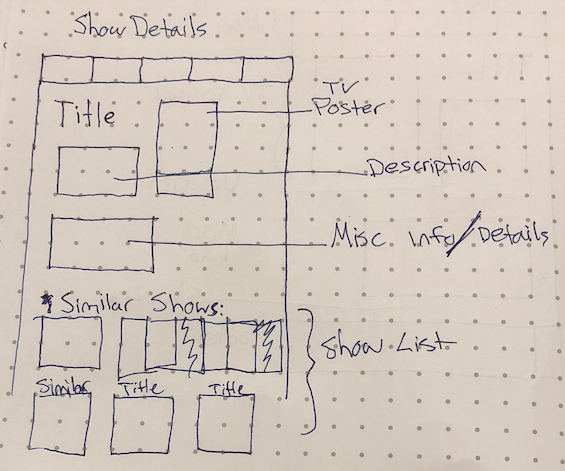 Show Details
Title
TV
Poster
Description
Misc info/Details
Similar Shows:
Show List
Similar Title Title